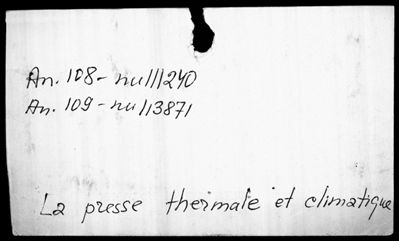 An. 108 - nu 111240
An. 109 - nu 113871
La presse thermale et climatique